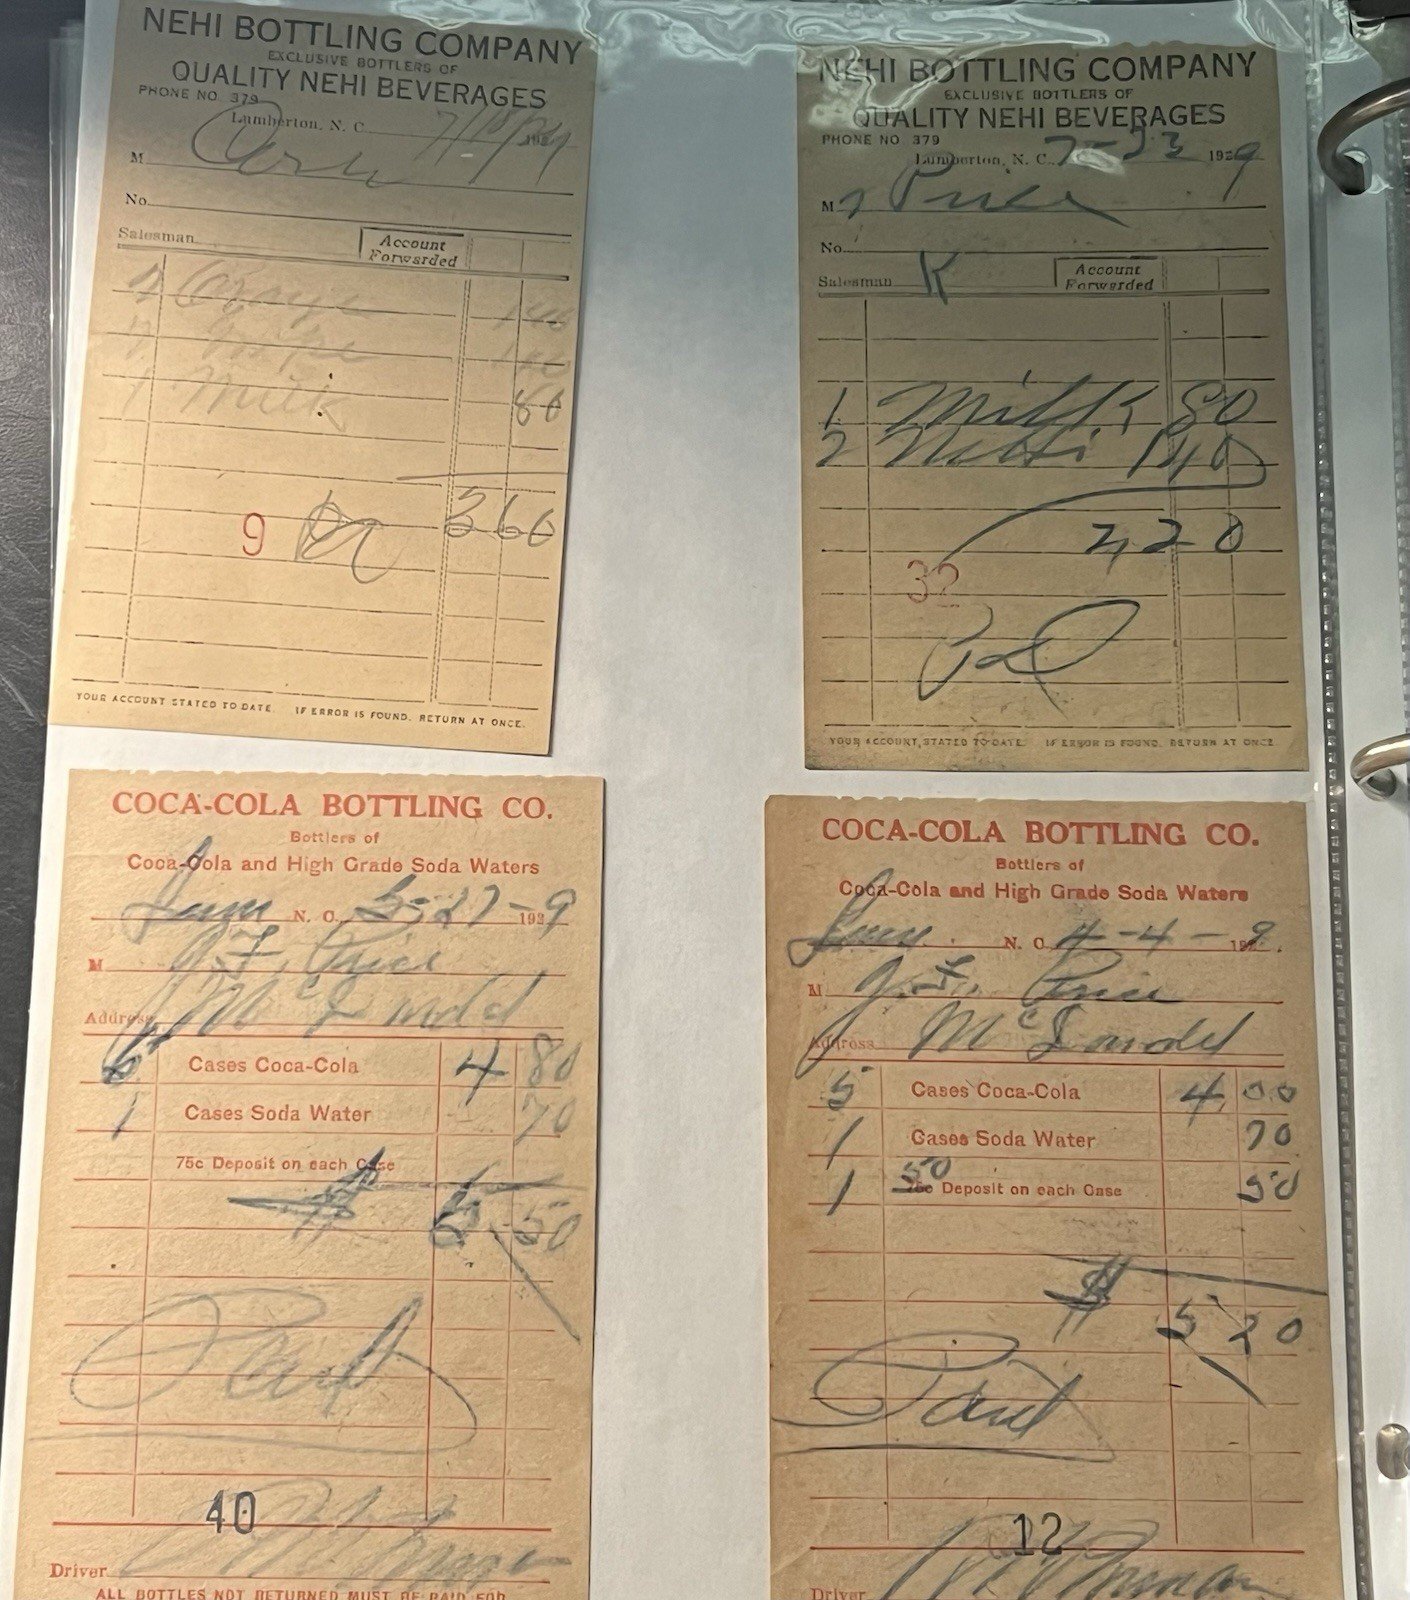 NEHI BOTTLING COMPANY
EXCLUSIVE BOTTLERS OF
QUALITY NEHI BEVERAGES
PHONE NO. 379
Lumberton, N. C.
M
No.
Salesman
Account Forwarded
2 Orange 140
2 Grape 140
1 Milk 80
360
9
YOUR ACCOUNT STATED TO DATE. IF ERROR IS FOUND, RETURN AT ONCE.
NEHI BOTTLING COMPANY
EXCLUSIVE BOTTLERS OF
QUALITY NEHI BEVERAGES
PHONE NO 379
Lumberton, N. C. 7-23 1929
M Price
No.
Salesman K
Account Forwarded
1 Milk 80
2 Nehi 140
2,20
32
Pd
YOUR ACCOUNT, STATED TO DATE. IF ERROR IS FOUND, RETURN AT ONCE
COCA-COLA BOTTLING CO.
Bottlers of
Coca-Cola and High Grade Soda Waters
Lum N. C. 5-27-9
M J. F. Price
Address
6 Cases Coca-Cola 4 80
1 Cases Soda Water 70
75c Deposit on each Case
$ 5 50
Paid
40
Driver
ALL BOTTLES NOT RETURNED MUST BE PAID FOR
COCA-COLA BOTTLING CO.
Bottlers of
Coca-Cola and High Grade Soda Waters
Lum N. C. 4-4-9
M J. F. Price
Address
5 Cases Coca-Cola 4 00
1 Cases Soda Water 70
1 50 75c Deposit on each Case 50
$ 5 20
Paid
12
Driver